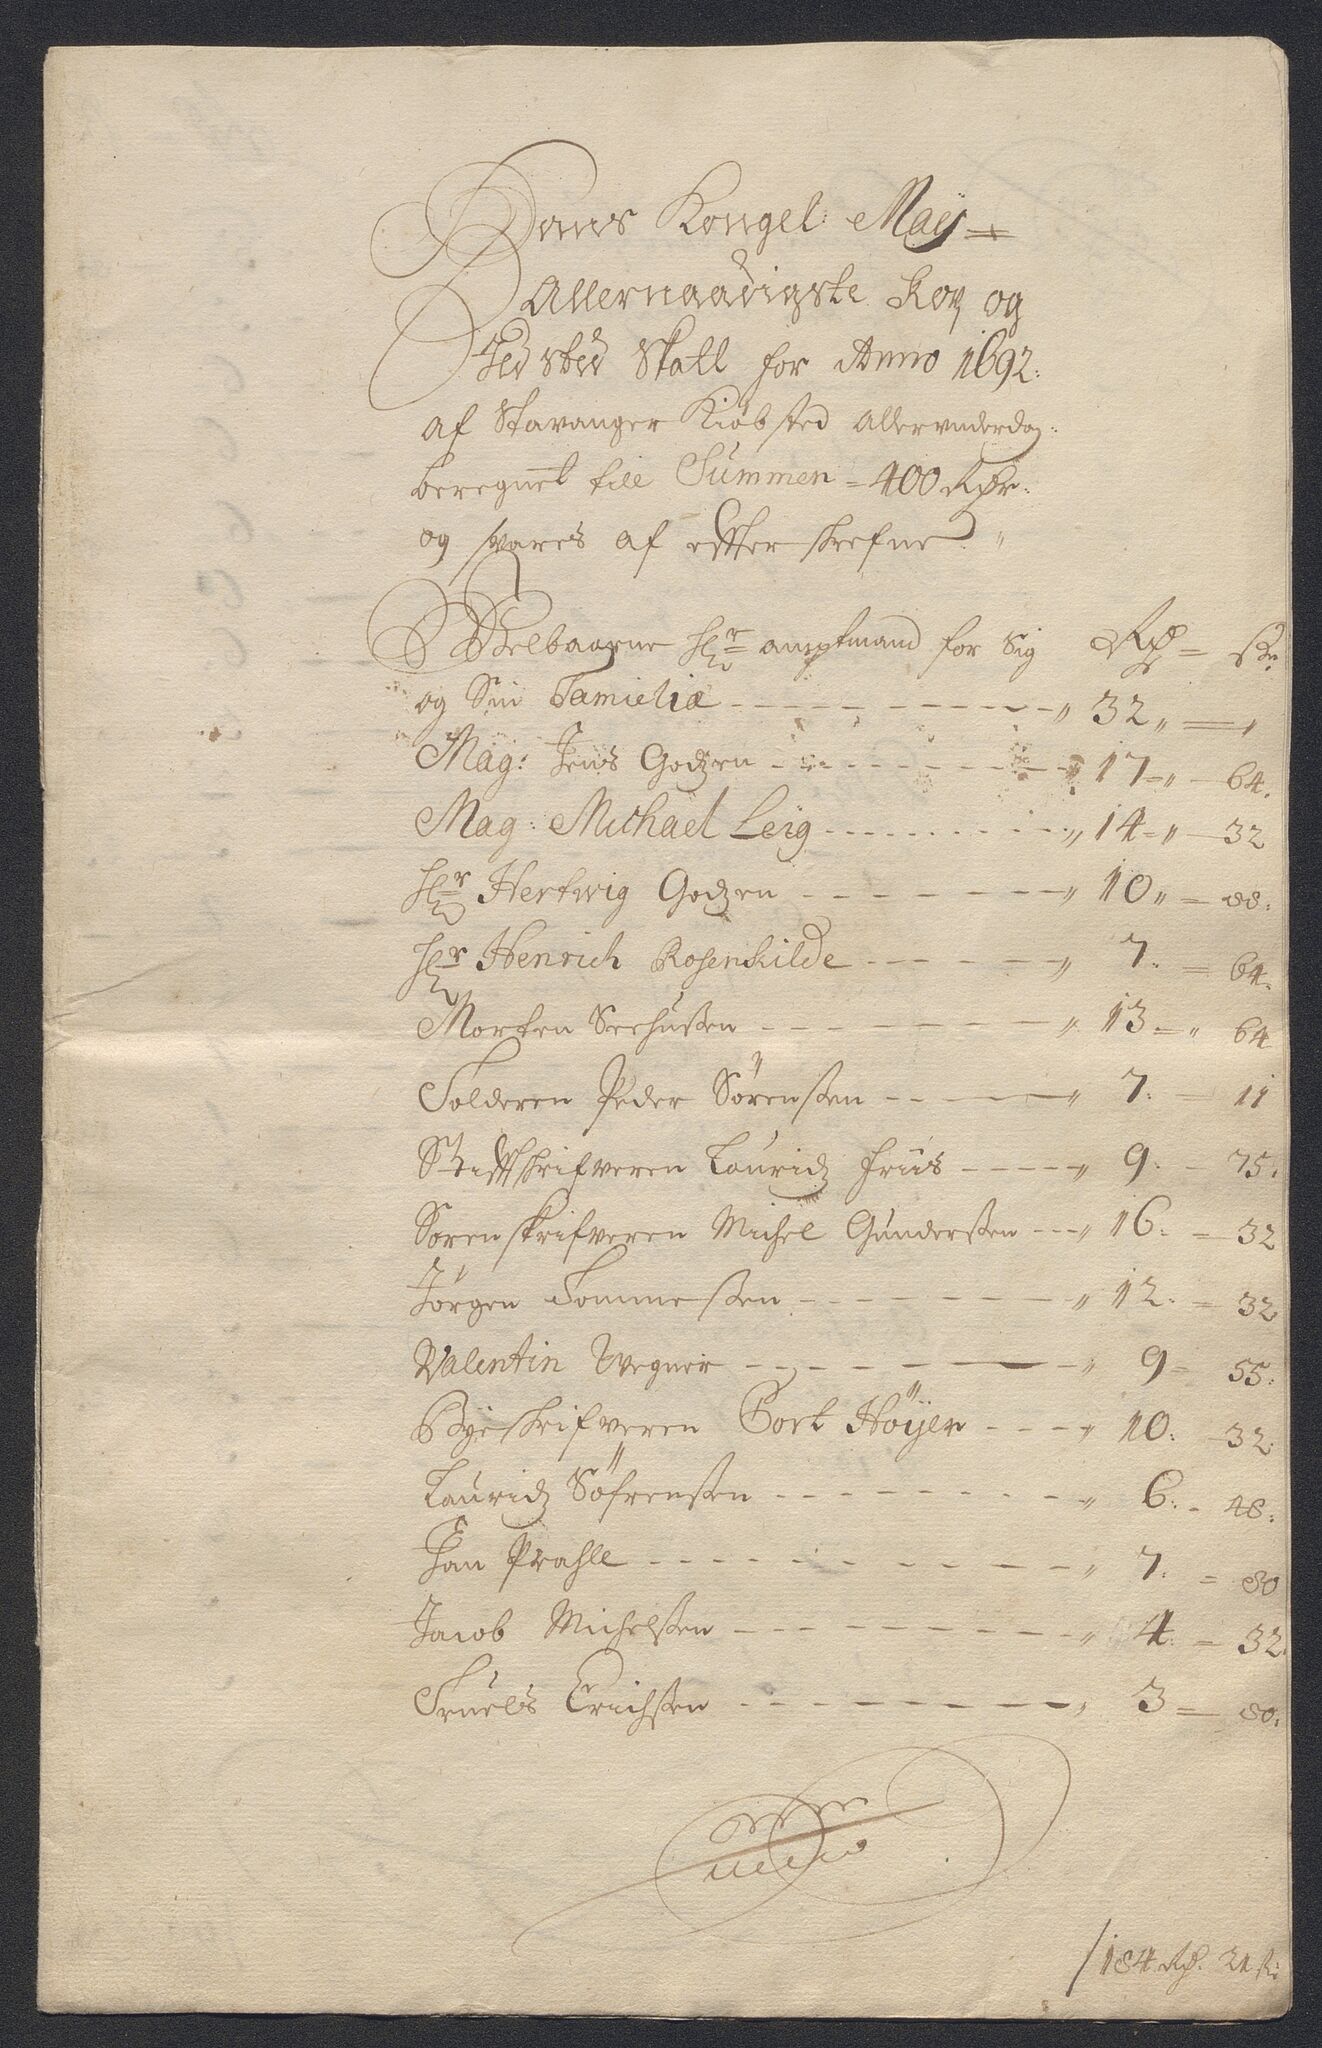 Hans Kongel: May:
Allernaadigste Kop og
Ild sted Skatt for Anno 1692:
af Stavanger Kiøbsted allerunderdg:
beregnet till Summen = 400 Rdr:
og svares af effterskrefne
Velbaarne Hr amptmand for Sig Rd = sk
og Sin Familia - 32 =
Mag: Jens Godzen - 17 = 64.
Mag: Michael Leig - 14 = 32
Hr Hertwig Godzen - 10 = 88:
Hr Henrich Rosenkilde - 7. = 64.
Morten Seehusen - 13 = 64
Tolderen Peder Sörensen - 7. - 11
Stifftskrifveren Lauridz Friis - 9. - 75:
Sorenskrifveren Michel Gundersen - 16. = 32
Jörgen Tommesen - 12. = 32
Valentin Wegner - 9 - 55:
Byeskrifveren Gort Höijer - 10. - 32:
Lauridz Söfrensen - 6. - 48:
Jan Prahll - 7. = 80
Jacob Michelsen - 4. = 32
Truels Erichsen - 3 = 80:
/184 Rd. 21 sk